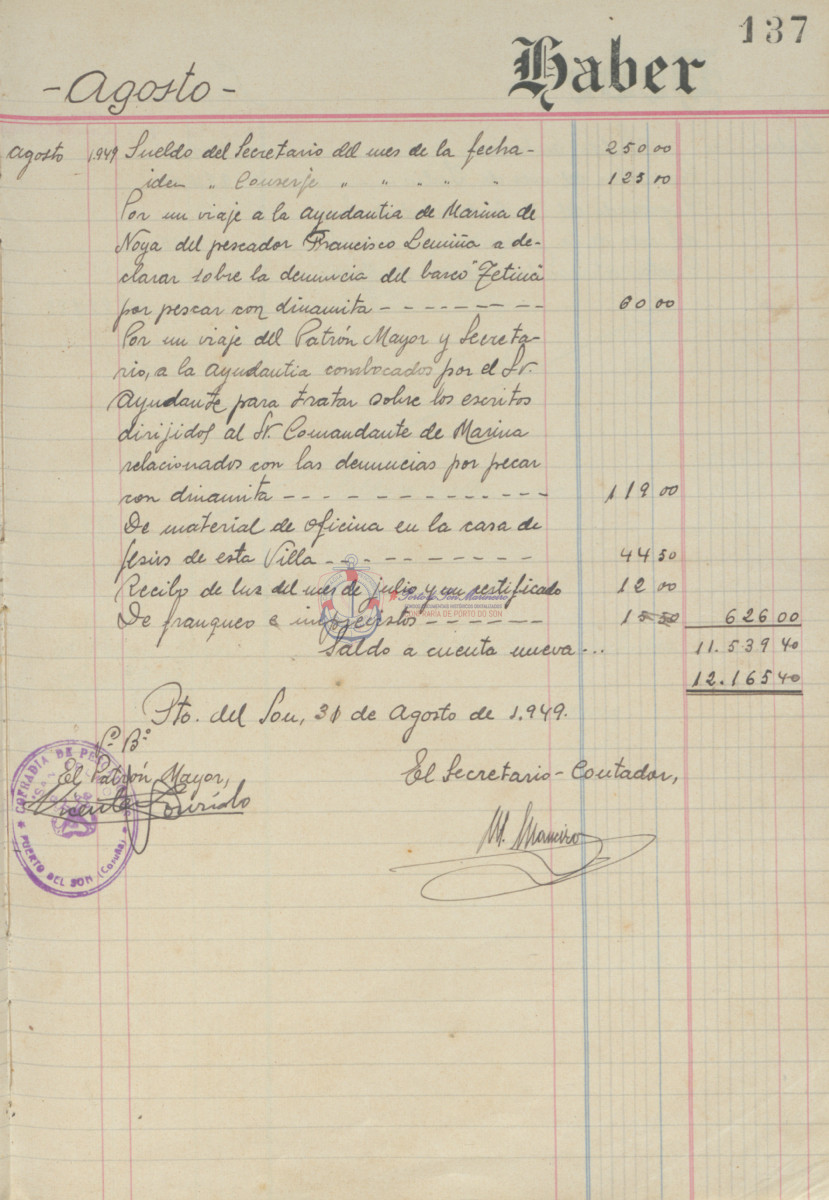 137
- Agosto -
Haber
Agosto 1.949 Sueldo del Secretario del mes de la fecha - 250 00
iden " Conserje " " " " " 125 00
Por un viaje a la Ayudantia de Marina de
Noya del pescador Francisco Lemiña a de-
clarar sobre la denuncia del barco "
por pescar con dinamita - - - - - - - - 60 00
Por un viaje del Patrón Mayor y Secreta-
rio, a la Ayudantia combocados por el Sr.
Ayudante para tratar sobre los escritos
dirijidos al Sr. Comandante de Marina
relacionados con las denuncias por pecar
con dinamita - - - - - - - - - - - - - 119 00
De material de oficina en la casa de
Jesús de esta Villa - - - - - - - - - - 44 50
Recibo de luz del mes de julio y un certificado 12 00
De franqueo e - - - - - - 15 50 626 00
Saldo a cuenta nueva - . . 11.539 40
12.165 40
Pto. del Son, 31 de Agosto de 1.949.
Vº Bº
El Patrón Mayor,
El Secretario - Contador,
Vicente
M. Maneiro
COFRADIA DE
PUERTO DEL SON (Coruña)
Porto do Son Marineiro
CONFRARÍA DE PORTO DO SON